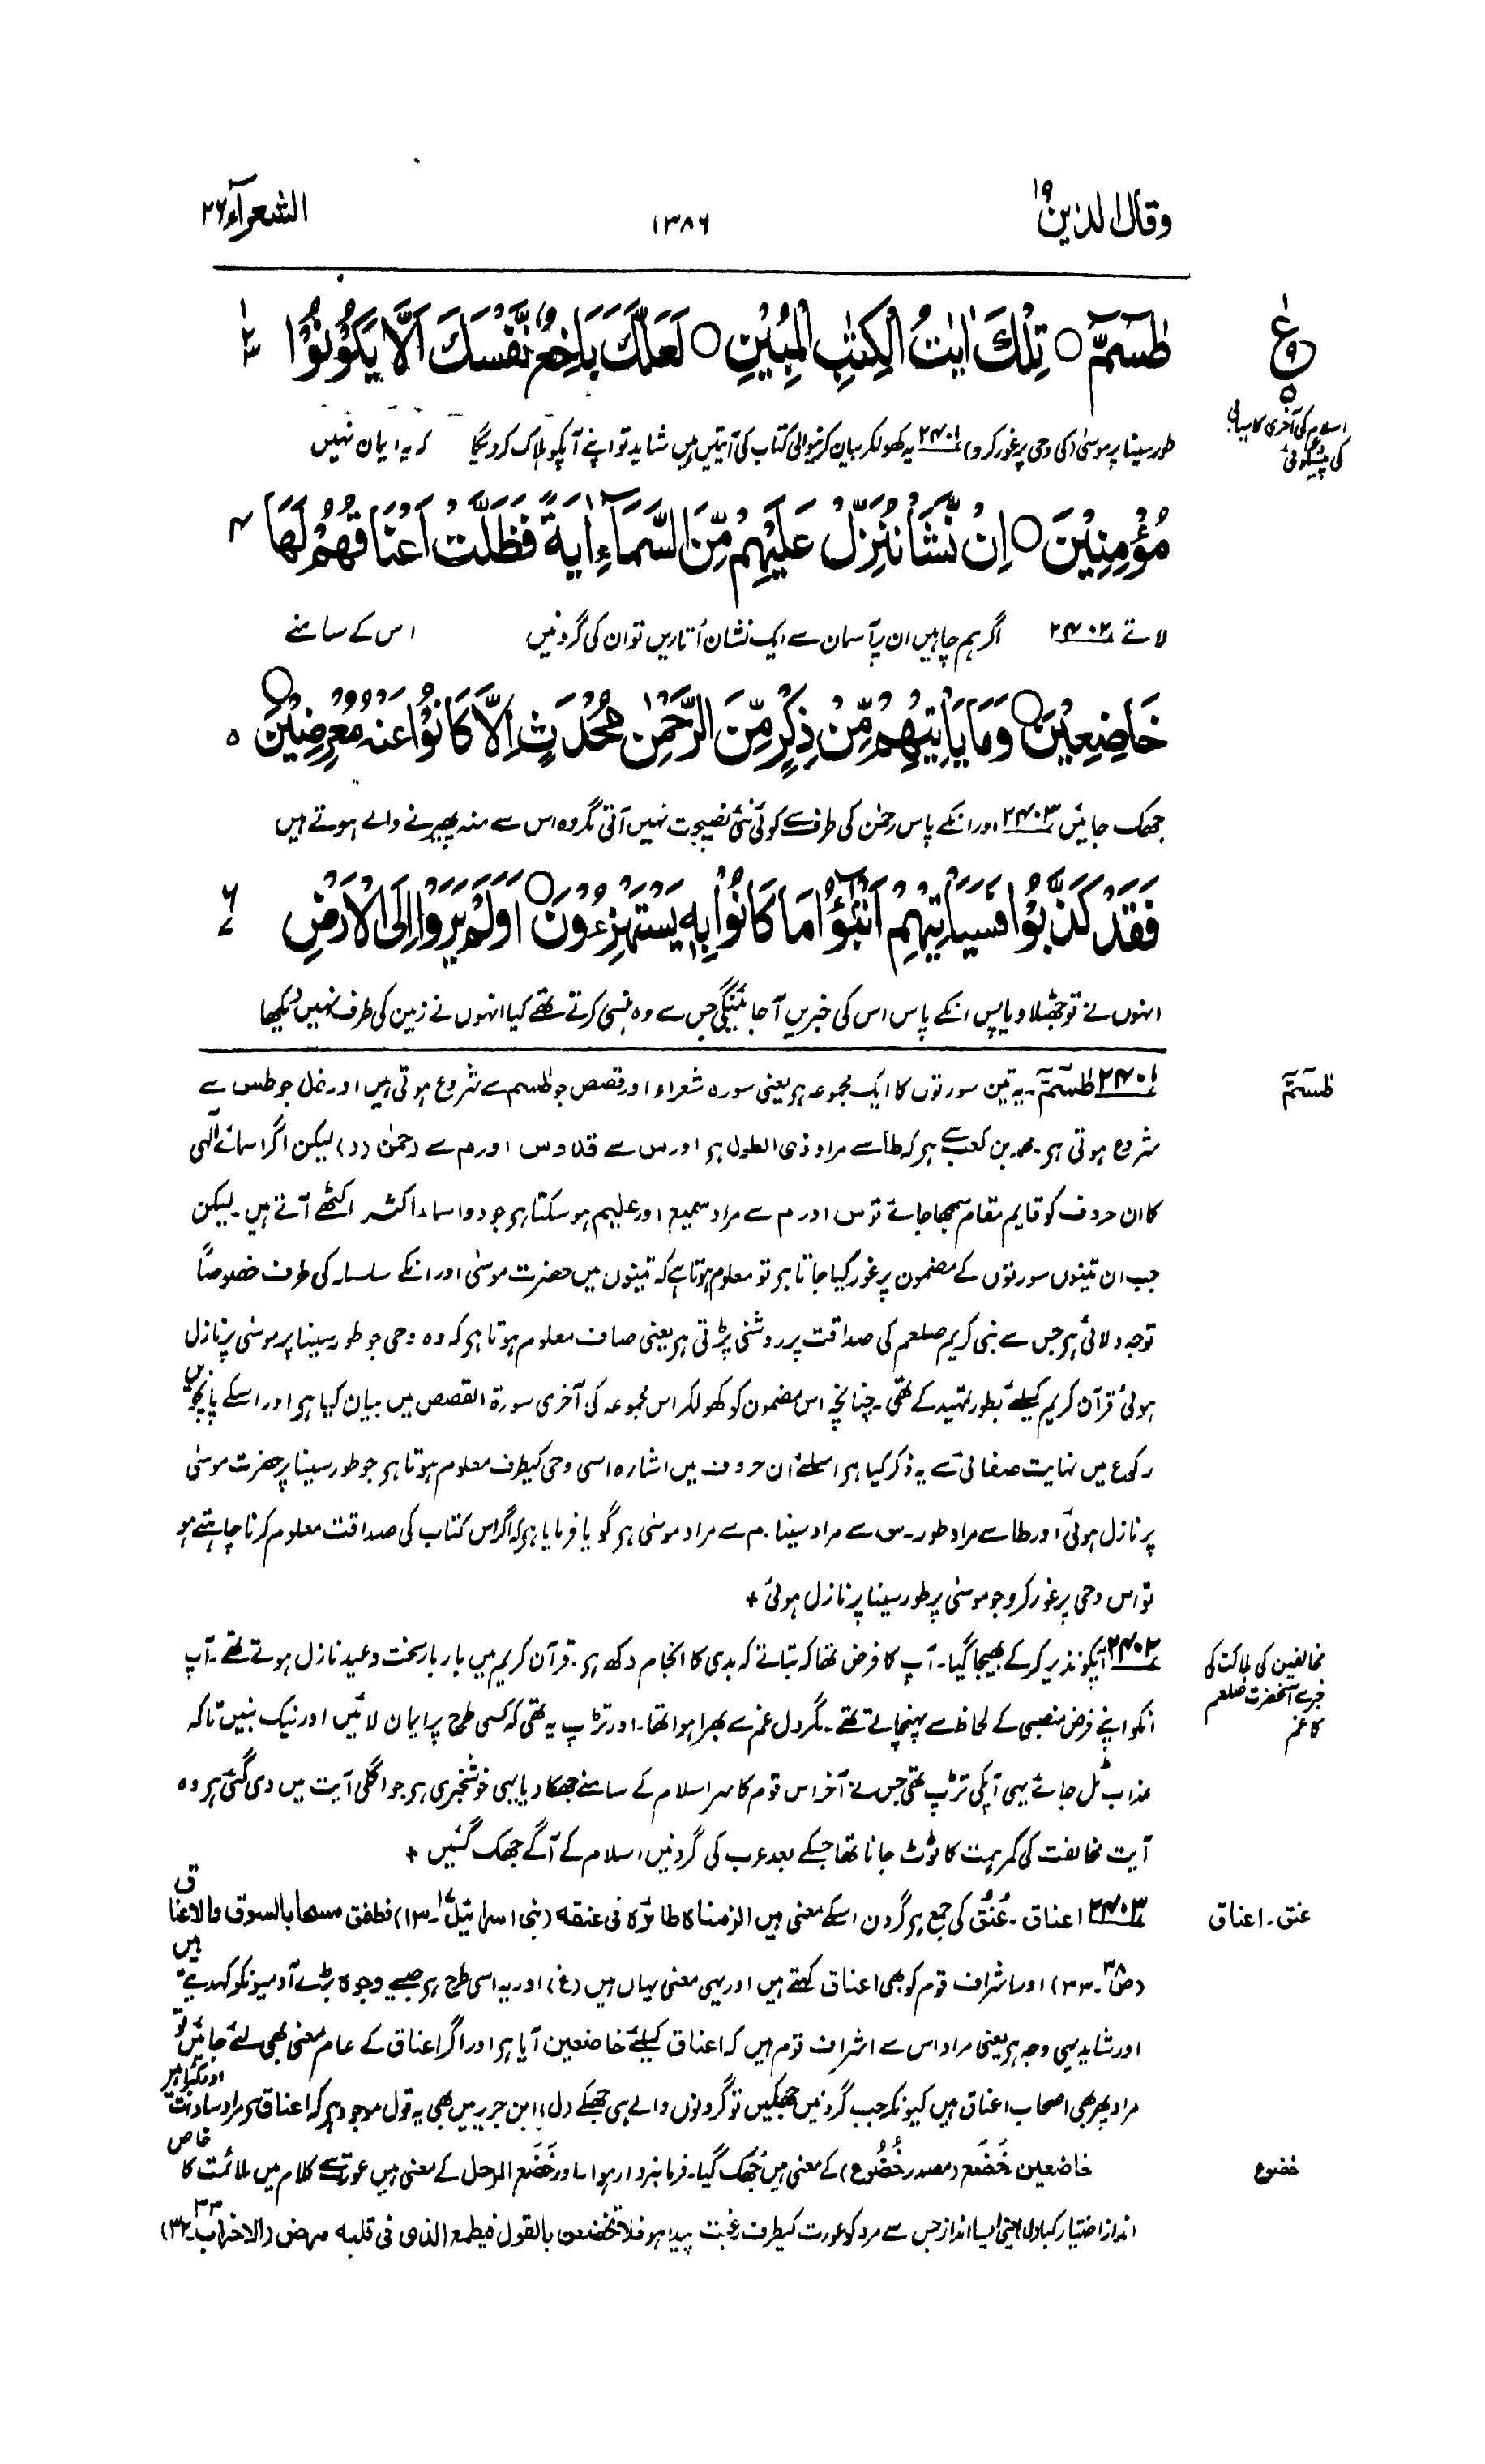 وقال الذين ۱۹
۱۳۸۶
الشعرآء ۲۶
طٰسٓمّٓ ○ تِلْكَ اٰيٰتُ الْكِتٰبِ الْمُبِيْنِ ○ لَعَلَّكَ بَاخِعٌ نَّفْسَكَ اَلَّا يَكُوْنُوْا
اسلام کی آخری کامیابی
کی پیشگوئی
طور سینا پر موسیٰ (کی وحی پر غور کرو) ۲۴۰۱ یہ کھولکر بیان کرنیوالی کتاب کی آیتیں ہیں شاید تو اپنے آپکو ہلاک کر دیگا کہ یہ ایمان نہیں
مُؤْمِنِيْنَ ○ اِنْ نَّشَاْ نُنَزِّلْ عَلَيْهِمْ مِّنَ السَّمَآءِ اٰيَةً فَظَلَّتْ اَعْنَاقُهُمْ لَهَا ۴
لاتے ۲۴۰۲ اگر ہم چاہیں ان پر آسمان سے ایک نشان اُتاریں تو ان کی گردنیں اس کے سامنے
خَاضِعِيْنَ ○ وَمَا يَاْتِيْهِمْ مِّنْ ذِكْرٍ مِّنَ الرَّحْمٰنِ مُحْدَثٍ اِلَّا كَانُوْا عَنْهُ مُعْرِضِيْنَ ○ ۵
جھک جائیں ۲۴۰۳ اور انکے پاس رحمٰن کی طرف سے کوئی نئی نصیحت نہیں آتی مگر وہ اس سے منہ پھیرنے والے ہوتے ہیں
فَقَدْ كَذَّبُوْا فَسَيَاْتِيْهِمْ اَنْۢبٰٓؤُا مَا كَانُوْا بِهٖ يَسْتَهْزِءُوْنَ ○ اَوَلَمْ يَرَوْا اِلَى الْاَرْضِ ۶
انہوں نے تو جھٹلا دیا پس انکے پاس اس کی خبریں آجائینگی جس سے وہ ہنسی کرتے تھے کیا انہوں نے زمین کی طرف نہیں دیکھا
طٰسٓمّٓ
۲۴۰۱ طٰسٓمّٓ۔ یہ تین سورتوں کا ایک مجموعہ ہے یعنی سورہ شعراء اور قصص جو طٰسم سے شروع ہوتی ہیں اور نمل جو طس سے
شروع ہوتی ہے۔ محمد بن کعب سے ہے کہ طا سے مراد ذی الطول ہے اور س سے قدوس اور م سے رحمٰن (د) لیکن اگر اسمائے الٰہی
کا ان حروف کو قایم مقام سمجھا جائے تو س اور م سے مراد سمیع اور علیم ہو سکتا ہے جو دو اسماء اکثر اکٹھے آتے ہیں۔ لیکن
جب ان تینوں سورتوں کے مضمون پر غور کیا جاتا ہے تو معلوم ہوتا ہے کہ تینوں میں حضرت موسیٰ اور انکے سلسلہ کی طرف خصوصاً
توجہ دلائی ہے جس سے نبی کریم صلعم کی صداقت پر روشنی پڑتی ہے یعنی صاف معلوم ہوتا ہے کہ وہ وحی جو طور سینا پر موسیٰ پر نازل
ہوئی قرآن کریم کیلئے بطور تمہید کے تھی۔ چنانچہ اس مضمون کو کھولکر اس مجموعہ کی آخری سورۃ القصص میں بیان کیا ہے اور اسکے پانچویں
رکوع میں نہایت صفائی سے یہ ذکر کیا ہے اسلئے ان حروف میں اشارہ اسی وحی کیطرف معلوم ہوتا ہے جو طور سینا پر حضرت موسیٰ
پر نازل ہوئی اور طا سے مراد طور۔ س سے مراد سینا۔ م سے مراد موسیٰ ہے گویا فرمایا ہے کہ اگر اس کتاب کی صداقت معلوم کرنا چاہتے ہو
تو اس وحی پر غور کرو جو موسیٰ پر طور سینا پر نازل ہوئی +
مخالفین کی ہلاکت کی
خبر سے آنحضرت صلعم
کا غم
۲۴۰۲ آپکو نذیر کرکے بھیجا گیا۔ آپ کا فرض تھا کہ بتاتے کہ بدی کا انجام دکھ ہے۔ قرآن کریم میں بار بار سخت وعید نازل ہوتے تھے۔ آپ
انکو اپنے فرض منصبی کے لحاظ سے پہنچاتے تھے۔ مگر دل غم سے بھرا ہوا تھا۔ اور تڑپ یہ تھی کہ کسی طرح پر ایمان لائیں اور نیک بنیں تاکہ
عذاب ٹل جائے یہی آپکی تڑپ تھی جس نے آخر اس قوم کا سر اسلام کے سامنے جھکا دیا یہی خوشخبری ہے جو اگلی آیت میں دی گئی ہے وہ
آیت مخالفت کی کمر ہمت کا ٹوٹ جانا تھا جسکے بعد عرب کی گردنیں اسلام کے آگے جھک گئیں +
عنق۔ اعناق
۲۴۰۳ اعناق۔ عُنُق کی جمع ہے گردن اسکے معنی ہیں الزمناہ طائرہ فی عنقہ (بنی اسرائیل ۱۷۔۱۳) فطفق مسحا بالسوق والاعناق
(ص ۳۸۔۳۳) اور اشراف قوم کو بھی اعناق کہتے ہیں اور یہی معنی یہاں ہیں (غ) اور یہ اسی طرح ہے جیسے وجوہ بڑے آدمیونکو کہدیتے ہیں
اور شاید یہی وجہ ہے یعنی مراد اس سے اشراف قوم ہیں کہ اعناق کیلئے خاضعین آیا ہے اور اگر اعناق کے عام معنی بھی لئے جائیں تو
مراد پھر بھی اصحاب اعناق ہیں کیونکہ جب گردنیں جھکیں تو گردنوں والے ہی جھکے (ل) ابن جریر میں بھی یہ قول موجود ہے کہ اعناق سے مراد سادات
خضوع
خاضعین خَضَع (مصدر خُضُوع) کے معنی ہیں جھک گیا۔ فرمانبردار ہوا۔ اور خَضَع الرجل کے معنی ہیں عورت سے کلام میں ملائمت کا خاص
انداز اختیار کیا (ل) یعنی ایسا انداز جس سے مرد کو عورت کیطرف رغبت پیدا ہو فلا تخضعن بالقول فیطمع الذی فی قلبہ مرض (الاحزاب ۳۳۔۳۲)